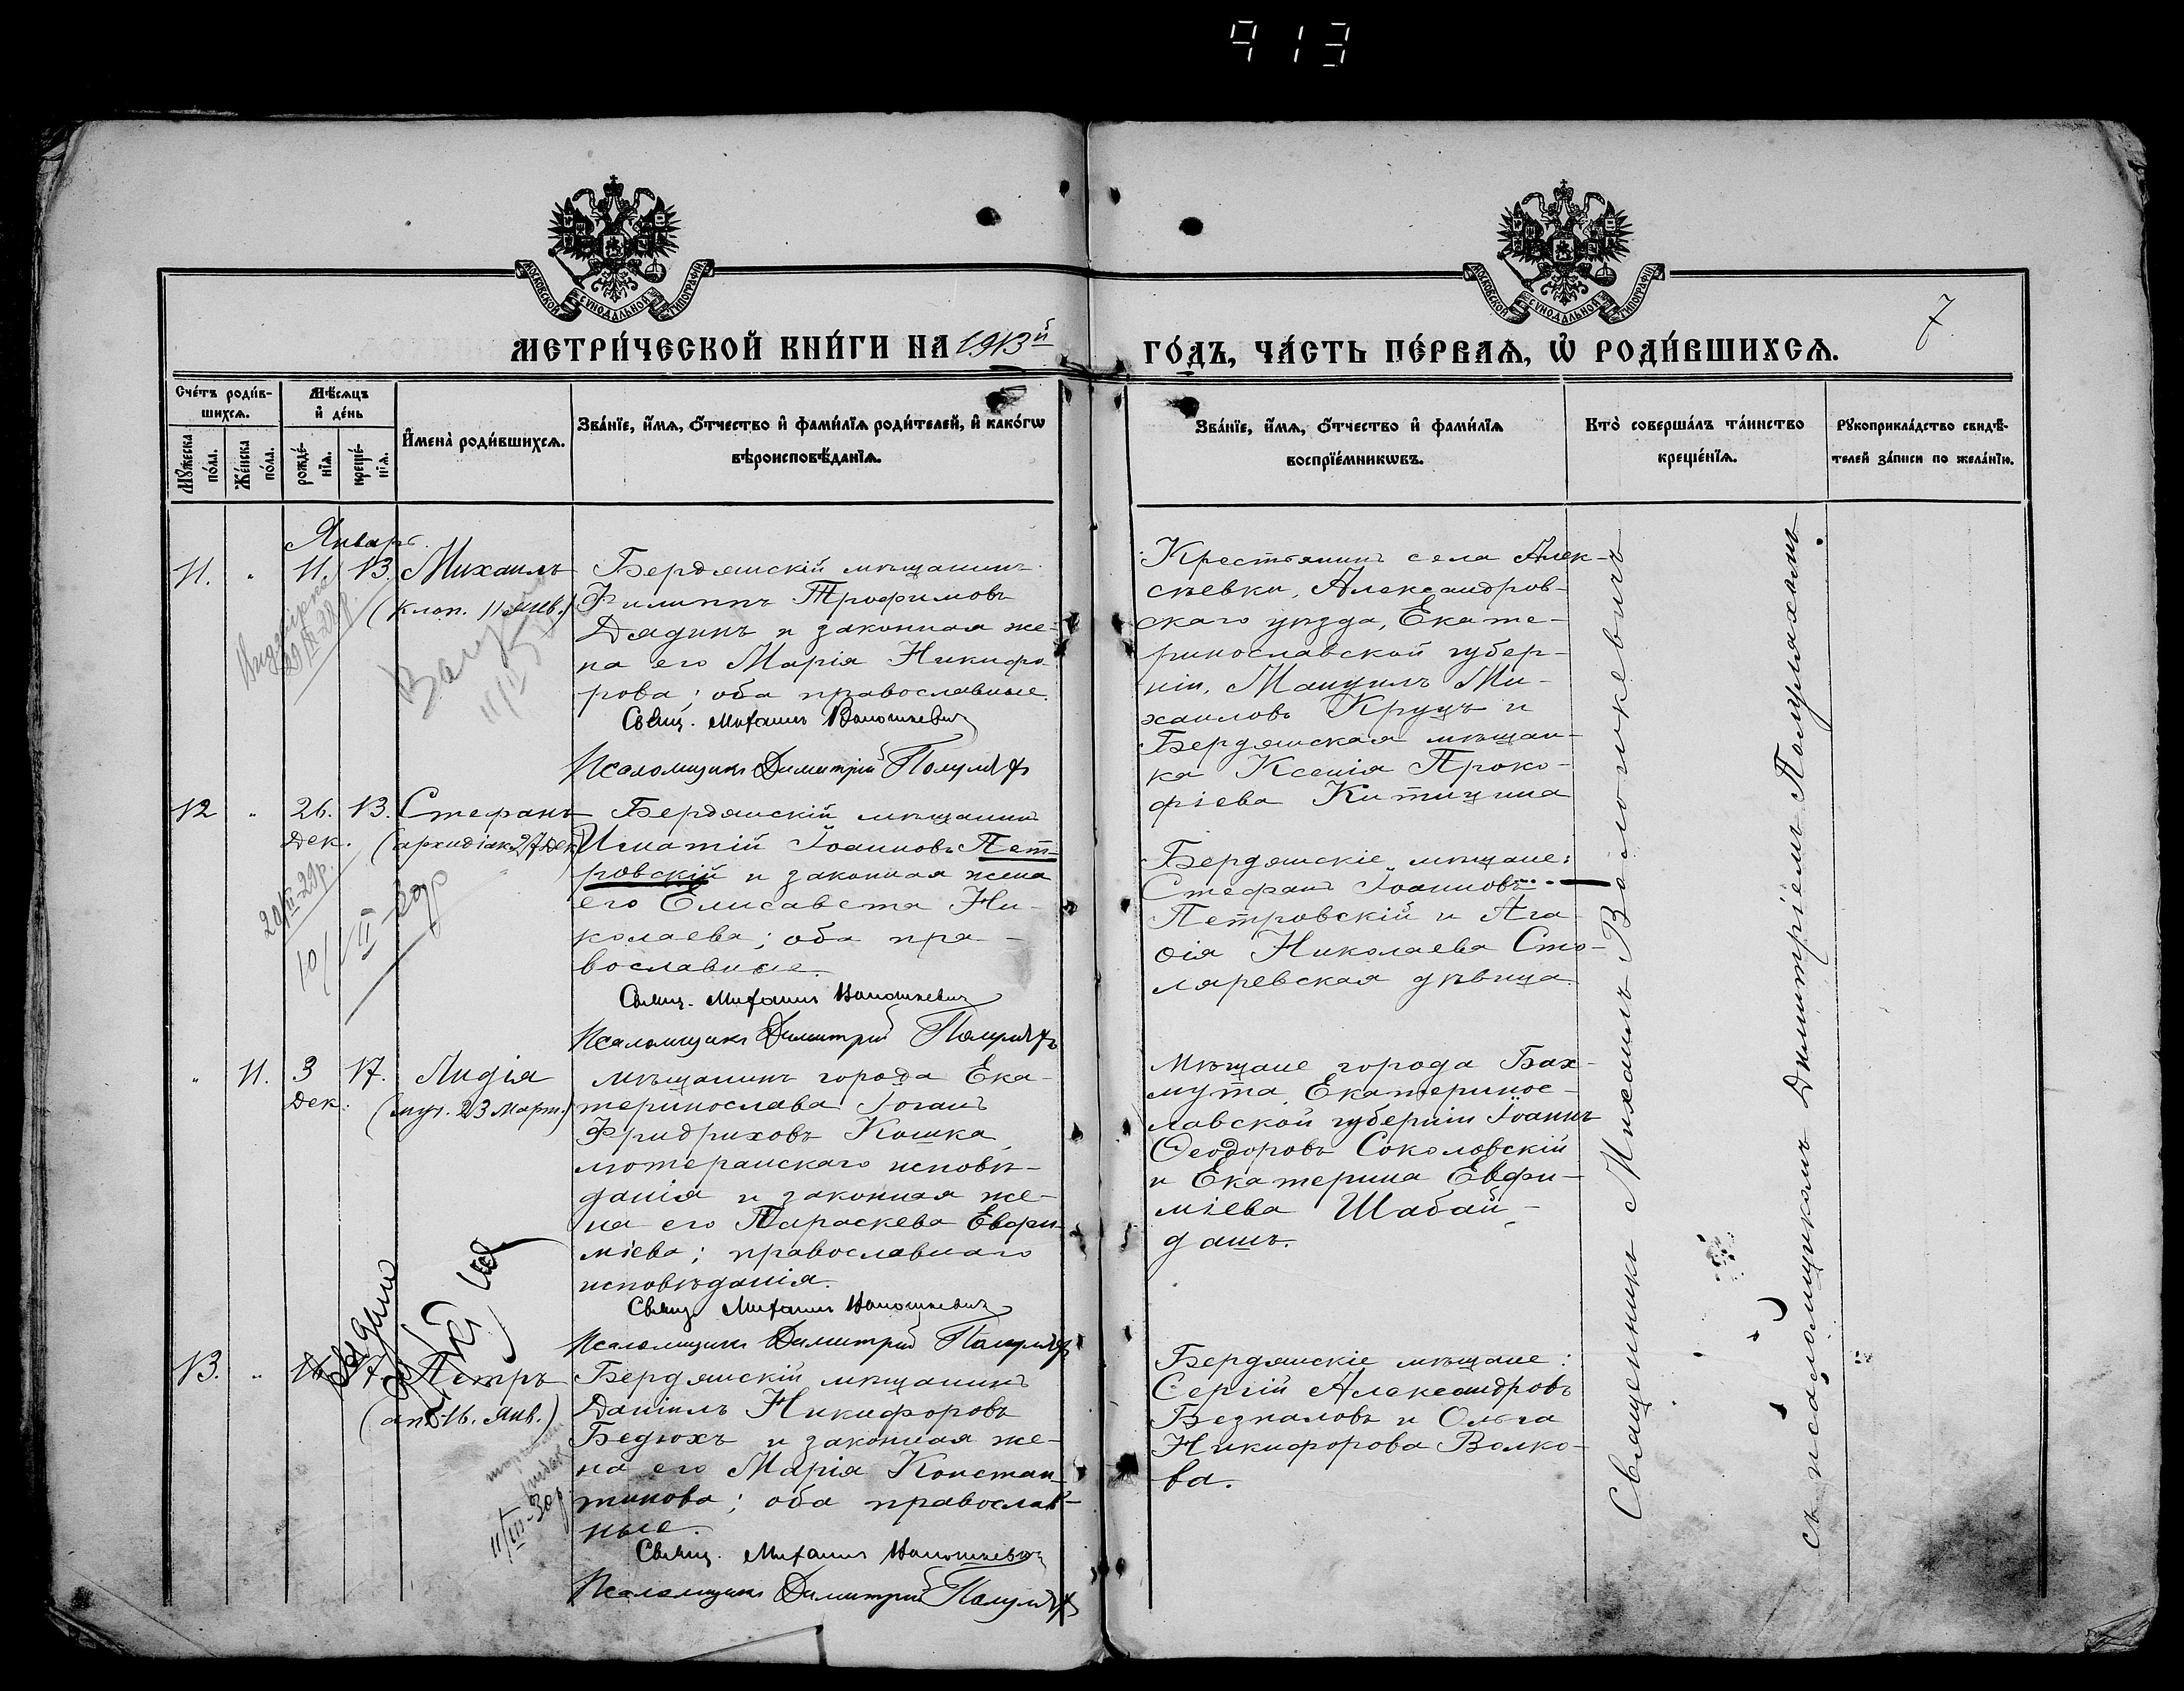 913
МОСКОВСКОЙ СѴНОДАЛЬНОЙ ТИПОГРАФІИ
МОСКОВСКОЙ СѴНОДАЛЬНОЙ ТИПОГРАФІИ
7
МЕТРИ́ЧЕСКОЙ КНИ́ГИ НА 1913й ГО́ДЪ, ЧА́СТЬ ПЕ́РВАѦ, Ѡ҆ РОДИ́ВШИХСѦ.
Сче́тъ роди́в-
шихсѧ.
Мꙋ́жеска
по́ла.
Же́нска
по́ла.
Мѣ́сѧцъ
и҆ де́нь
рожде́-
нїѧ.
креще́-
нїѧ.
И҆мена̀ роди́вшихсѧ.
Зва́нїе, и҆́мѧ, ѻ҆́тчество и҆ фами́лїѧ роди́телей, и҆ како́гѡ
вѣроисповѣ́данїѧ.
Зва́нїе, и҆́мѧ, ѻ҆́тчество и҆ фами́лїѧ
воспрїе́мникѡвъ.
Кто̀ соверша́лъ та́инство
креще́нїѧ.
Рꙋкоприкла́дство свидѣ́-
телей за́писи по жела́нїю.
Январь.
11. " 11. 13. Михаилъ
(клоп. 11 янв.)
Бердянскій мѣщанинъ
Филиппъ Трофимовъ
Дядинъ и законная же-
на его Марія Никифо-
рова; оба православные.
Свящ. Михаилъ Волошкевичъ
Псаломщикъ Димитрій Полуляхъ
Крестьянинъ села Алек-
сѣевки, Александров-
скаго уѣзда, Екате-
ринославской губер-
ніи, Мануилъ Ми-
хаиловъ Круцъ и
Бердянская мѣщан-
ка Ксенія Проко-
фіева Китицина
12 " 26. 13. Стефанъ
Дек. (архидіак. 27 Дек.)
Бердянскій мѣщанинъ
Игнатій Іоанновъ Пет-
ровскій и законная жена
его Елисавета Ни-
колаева; оба пра-
вославные.
Свящ. Михаилъ Волошкевичъ
Псаломщикъ Димитрій Полуляхъ
Бердянскіе мѣщане:
Стефанъ Іоанновъ
Петровскій и Ага-
ѳія Николаева Сто-
ляревская дѣвица.
" 11. 3 17. Лидія
Дек. (муч. 23 Март.)
Мѣщанинъ города Ека-
теринослава Іоганъ
Фридриховъ Кошка,
лютеранскаго исповѣ-
данія и законная же-
на его Параскева Евфи-
міева; православнаго
исповѣданія.
Свящ. Михаилъ Волошкевичъ
Псаломщикъ Димитрій Полуляхъ
Мѣщане города Бах-
мута, Екатеринос-
лавской губерніи Іоаннъ
Ѳеодоровъ Соколовскій
и Екатерина Евфи-
міева Шабай-
дашъ.
13. " 16 17. Петръ
(ап. 16. янв.)
Бердянскій мѣщанинъ
Даніилъ Никифоровъ
Бедюхъ и законная же-
на его Марія Констан-
тинова; оба православ-
ные.
Свящ. Михаилъ Волошкевичъ
Псаломщикъ Димитрій Полуляхъ
Бердянскіе мѣщане:
Сергій Александровъ
Безпаловъ и Ольга
Никифорова Волко-
ва.
Священникъ Михаилъ Волошкевичъ
съ псаломщикомъ Димитріемъ Полуляхомъ.